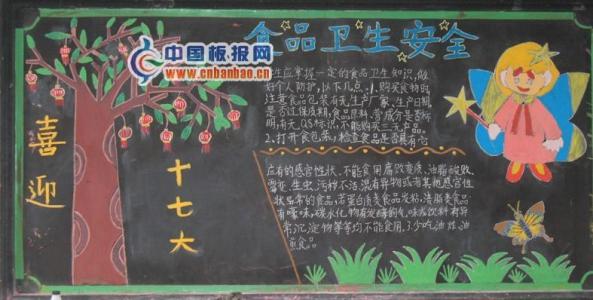 食品卫生安全
中国板报网
www.cnbanbao.cn
喜迎
十七大
生应掌握一定的食品卫生知识,做
好个人防护,以下几点:1.购买食物时
注意食品包装有无生产厂家、生产日期,
是否过保质期,食品原料、营养成分是否标
明,有无QS标识,不能购买三无产品。
2.打开食包装,检查食品是否具有它
应有的感官性状、不能食用腐败变质、油脂酸败、
霉变、生虫、污秽不洁、混有异物或者其他感官性
状异常的食品,若蛋白质类食品发粘,渍脂类食品
有嚎味,碳水化物有发酵的气味或饮料有异
常沉淀物等等均不能食用,3.少吃油炸油
煎食品